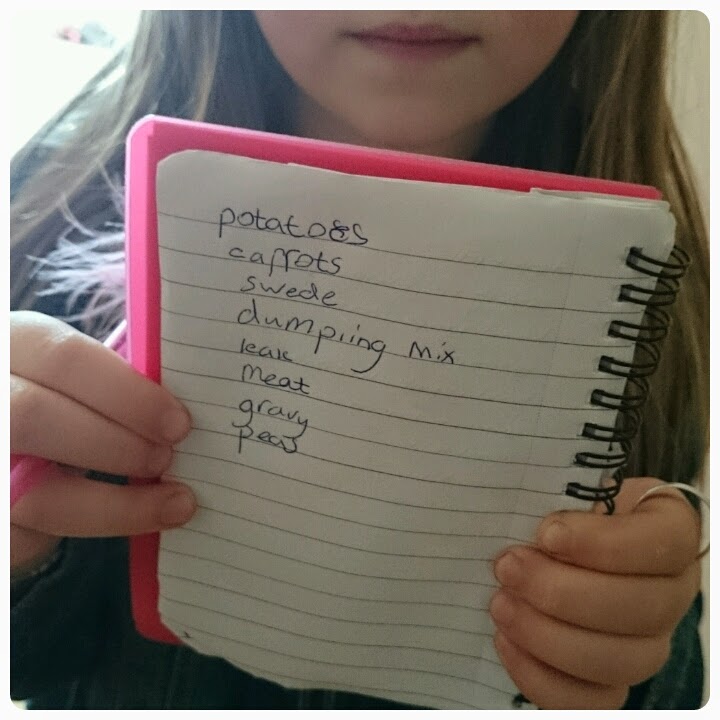 potatoes
carrots
swede
dumpling mix
leak
meat
gravy
peas